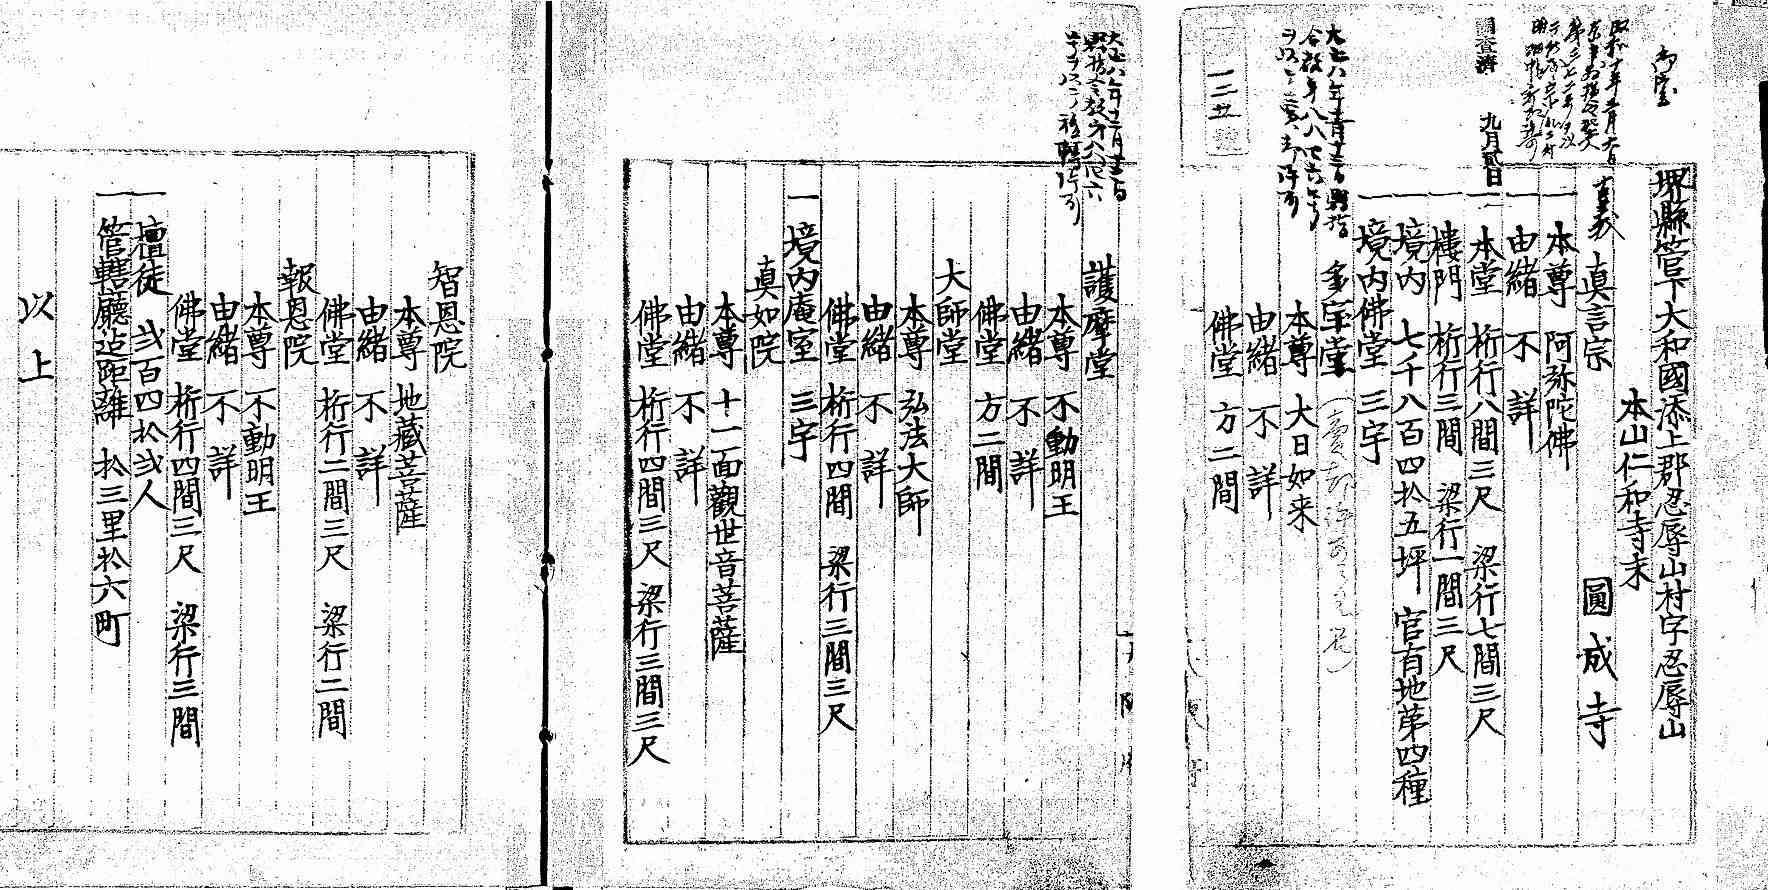 堺縣管下大和國添上郡忍辱山村字忍辱山
本山仁和寺末
眞言宗 圓成寺
一 本尊 阿弥陀佛
一 由緒 不詳
一 本堂 桁行八間三尺 梁行七間三尺
一 樓門 桁行三間 梁行一間三尺
一 境内 七千八百四拾五坪 官有地第四種
一 境内佛堂 三宇
多宝堂
本尊 大日如来
由緒 不詳
佛堂 方二間
護摩堂
本尊 不動明王
由緒 不詳
佛堂 方二間
大師堂
本尊 弘法大師
由緒 不詳
佛堂 桁行四間 梁行三間三尺
一 境内庵室 三宇
眞如院
本尊 十一面觀世音菩薩
由緒 不詳
佛堂 桁行四間三尺 梁行三間三尺
智恩院
本尊 地藏菩薩
由緒 不詳
佛堂 桁行二間三尺 梁行二間
報恩院
本尊 不動明王
由緒 不詳
佛堂 桁行四間三尺 梁行三間
一 檀徒 弐百四拾弐人
一 管轄廳迠距離 拾三里拾六町
以上
調査濟 九月貳日